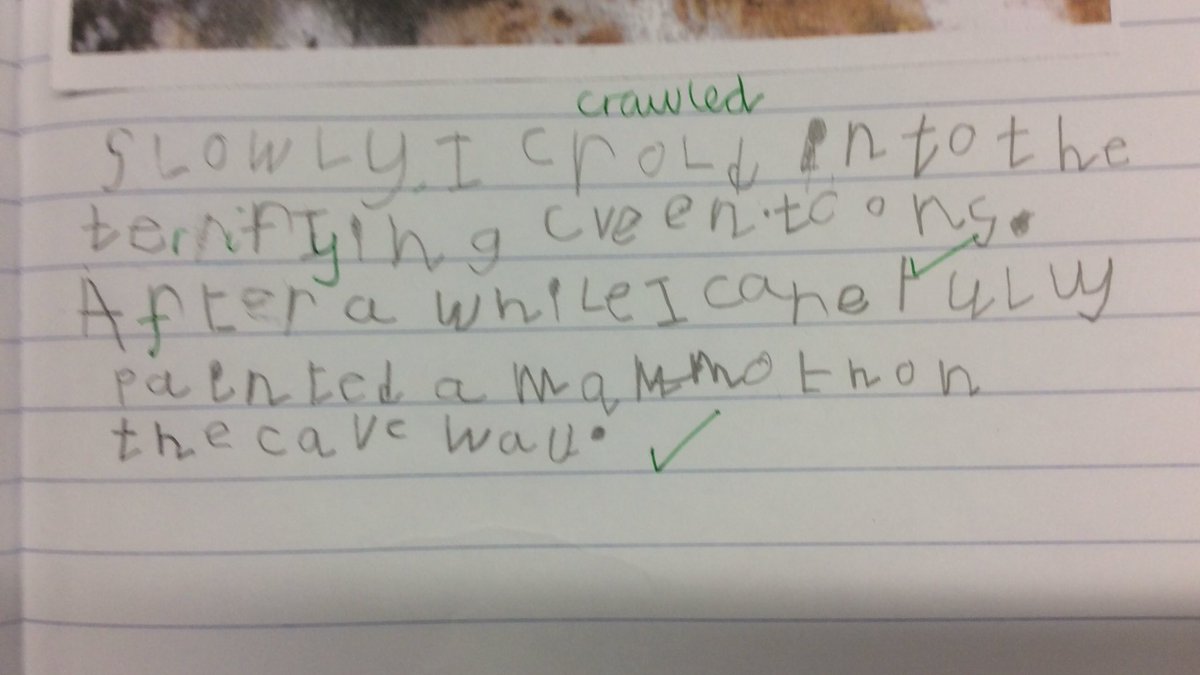 crawled
Slowly, I crold into the
terrifying cve entoons.
After a while I carefully
painted a mammoth on
the cave wall.